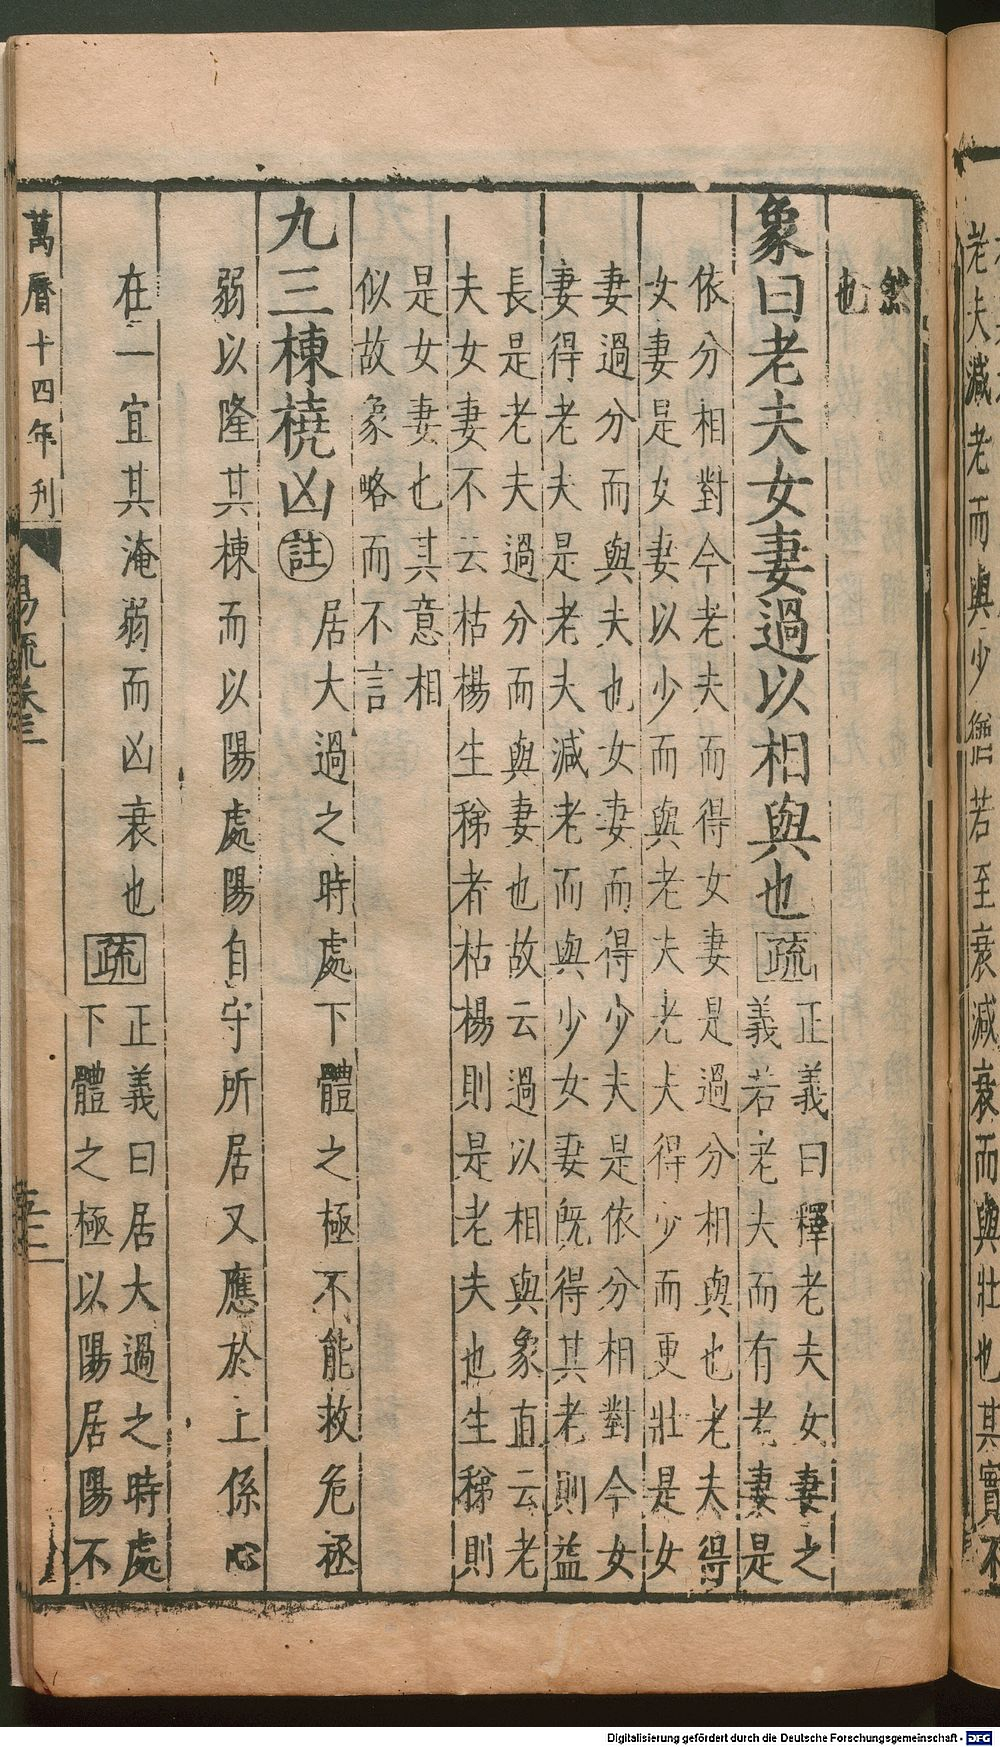 老夫減老而與少猶若至衰減衰而與壯也其實不
然
也
象曰老夫女妻過以相與也疏正義曰釋老夫女妻之
義若老夫而有老妻是
依分相對今老夫而得女妻是過分相與也老夫得
女妻是女妻以少而與老夫老夫得少而更壯是女
妻過分而與夫也女妻而得少夫是依分相對今女
妻得老夫是老夫減老而與少女妻既得其老則益
長是老夫過分而與妻也故云過以相與象直云老
夫女妻不云枯楊生稊者枯楊則是老夫也生稊則
是女妻也其意相
似故象略而不言
九三棟橈凶註居大過之時處下體之極不能救危拯
弱以隆其棟而以陽處陽自守所居又應於上係心
在一宜其淹弱而凶衰也疏正義曰居大過之時處
下體之極以陽居陽不
萬曆十四年刊
易疏卷三
Digitalisierung gefördert durch die Deutsche Forschungsgemeinschaft - DFG